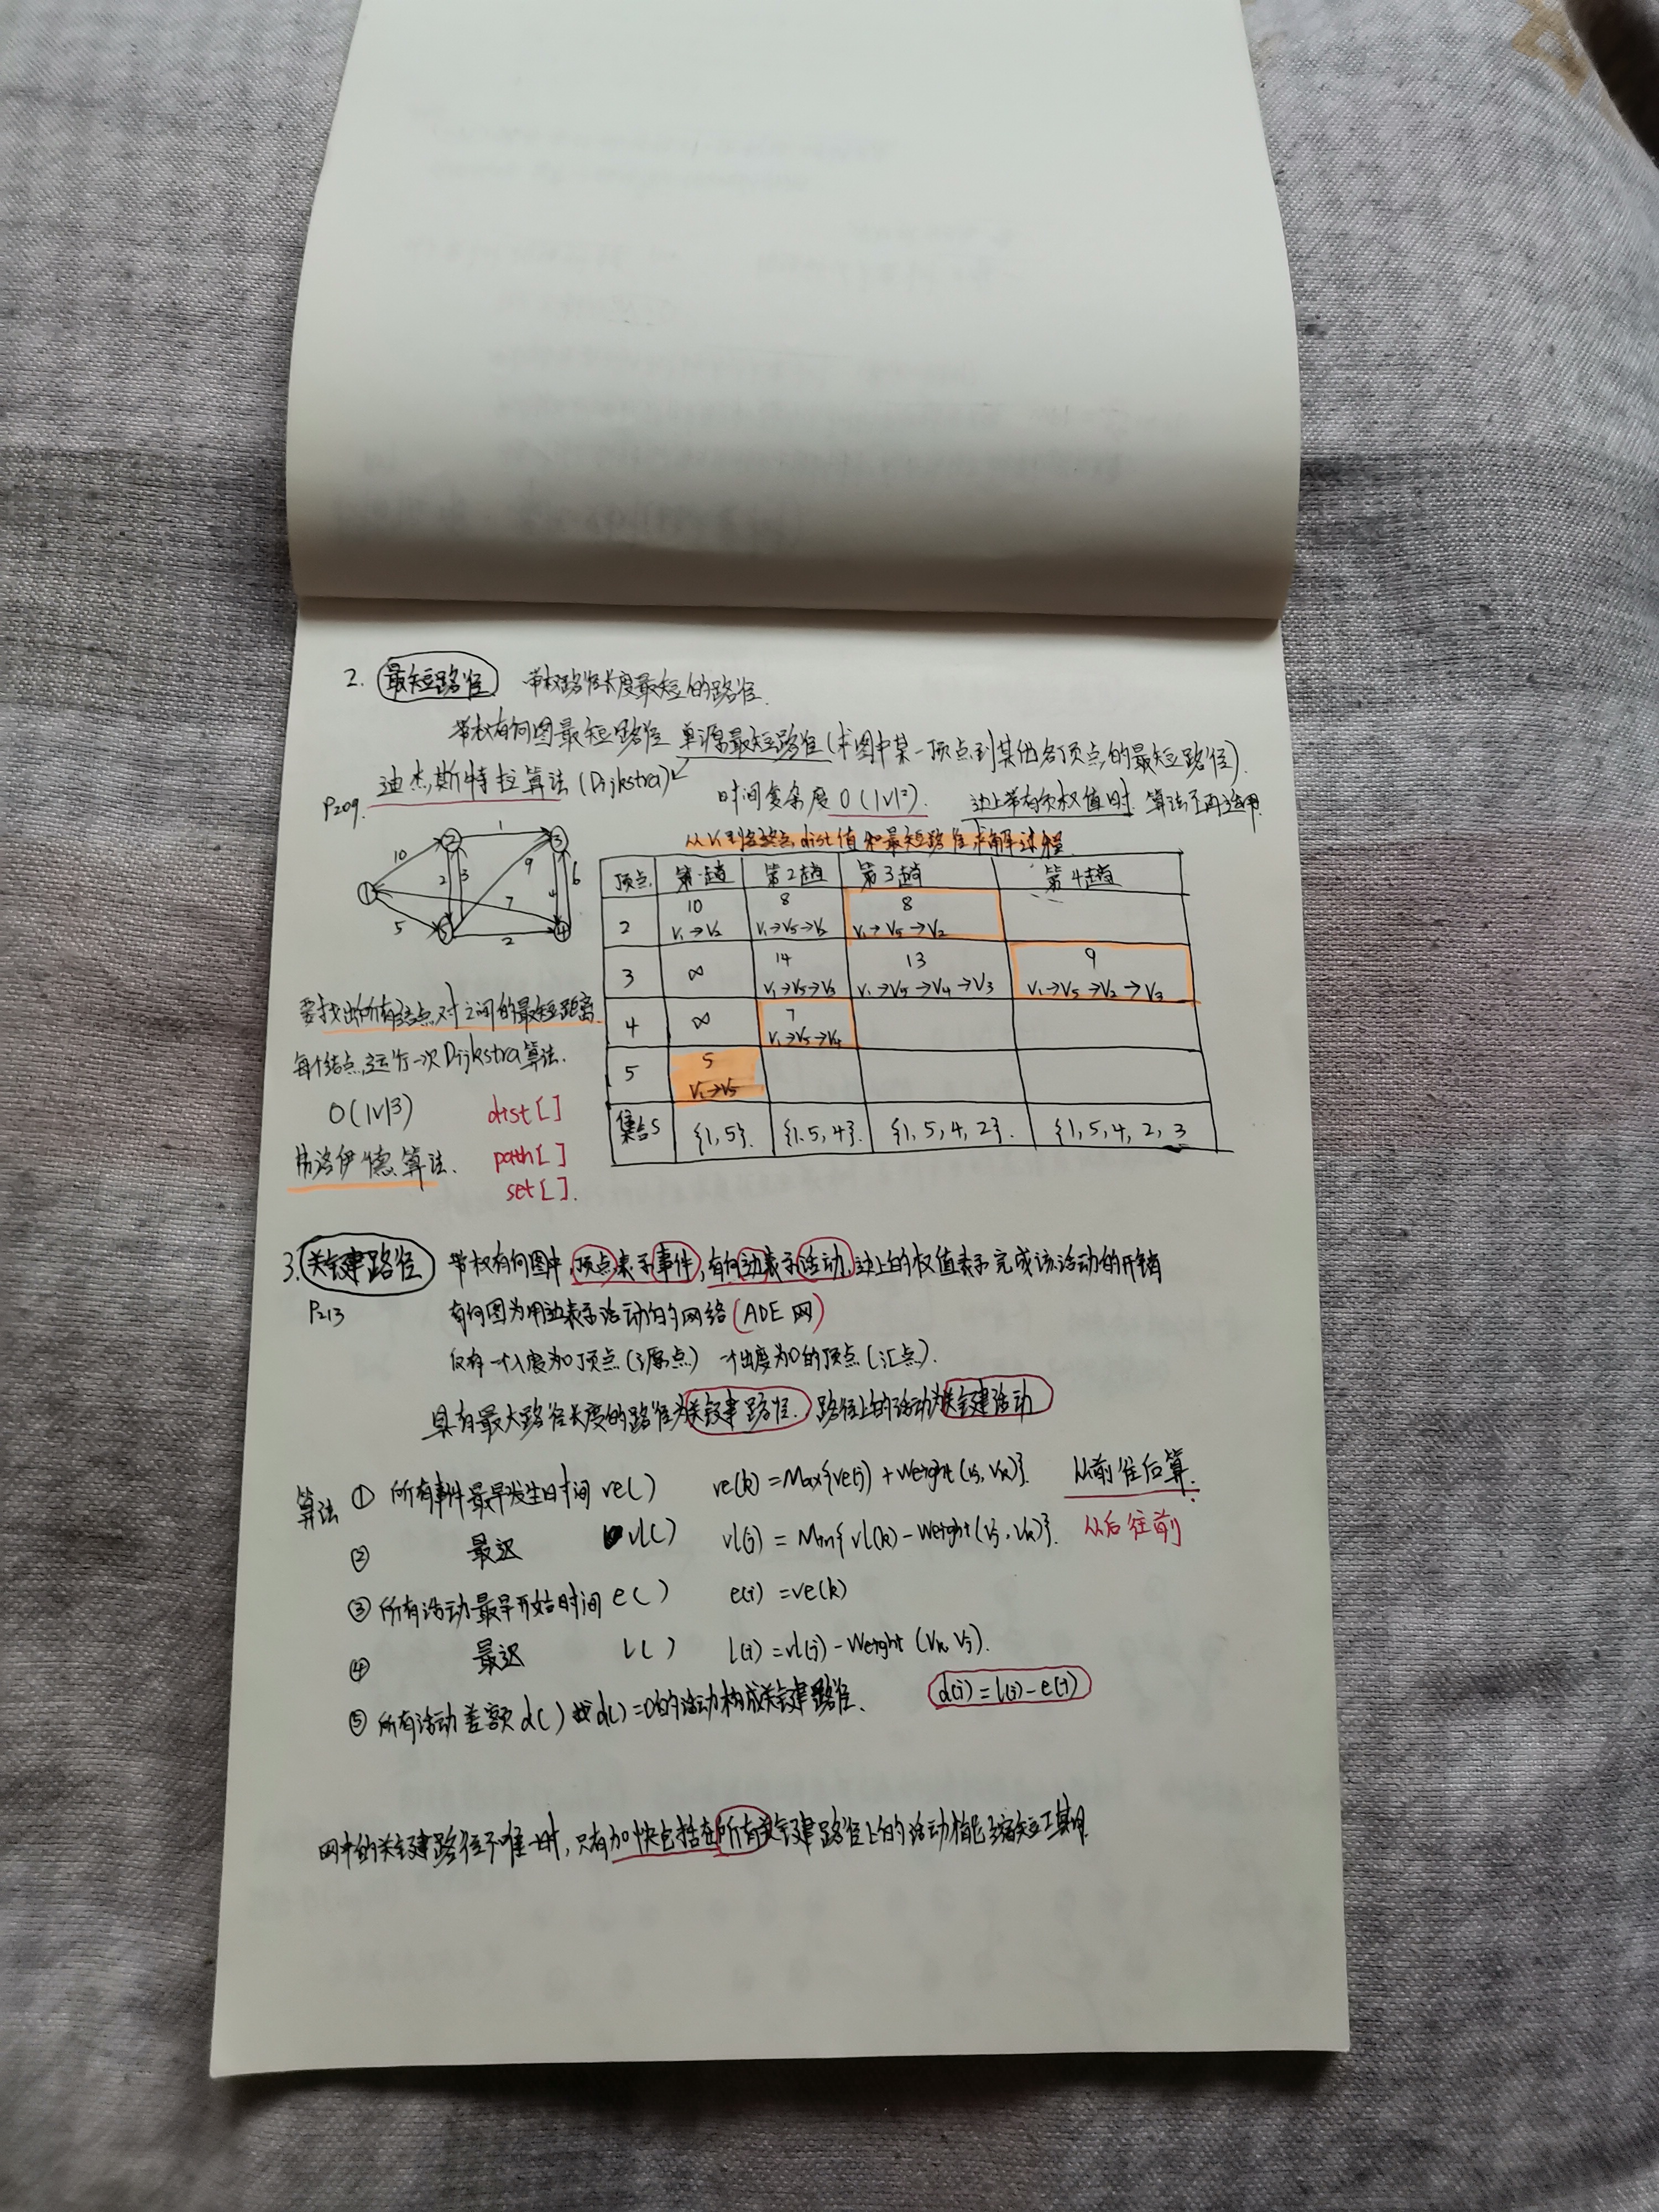 2. 最短路径 带权路径长度最短的路径.
带权有向图最短路径 单源最短路径(求图中某一顶点到其他各顶点的最短路径).
P209. 迪杰斯特拉算法 (Dijkstra) 时间复杂度 O(|V|²). 边上带有负权值时. 算法不再适用.
从V1到各终点dist值和最短路径求解过程
1 2 3 4 5
10 1 2 3 9 7 4 6 5 2
顶点 第1趟 第2趟 第3趟 第4趟
2 10 V1→V2 8 V1→V5→V2 8 V1→V5→V2
3 ∞ 14 V1→V5→V3 13 V1→V5→V4→V3 9 V1→V5→V2→V3
4 ∞ 7 V1→V5→V4
5 5 V1→V5
集合S {1,5}. {1.5,4}. {1,5,4,2}. {1,5,4,2,3
要找出所有结点对之间的最短距离
每个结点,运行一次Dijkstra算法.
O(|V|³)
弗洛伊德算法.
dist[]
path[]
set[].
3. 关键路径 带权有向图中,顶点表示事件,有向边表示活动,边上的权值表示完成该活动的开销
P213 有向图为用边表示活动的网络(AOE网)
仅有一个入度为0顶点(源点) 一个出度为0的顶点(汇点).
具有最大路径长度的路径为关键路径. 路径上的活动为关键活动
算法 ① 所有事件最早发生时间 ve( ) ve(k)=Max{ve(j)+Weight(vj,vk)}. 从前往后算.
② 最迟 vl( ) vl(j)=Min{vl(k)-Weight(vj,vk)}. 从后往前
③ 所有活动最早开始时间 e( ) e(i)=ve(k)
④ 最迟 l( ) l(i)=vl(j)-Weight(vk,vj).
⑤ 所有活动差额 d( ) 找d( )=0的活动构成关键路径. d(i)=l(i)-e(i)
网中的关键路径不唯一时,只有加快包括在所有关键路径上的活动才能缩短工期.